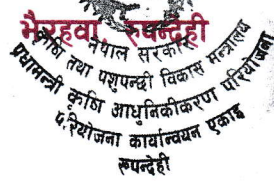 भैरहवा, रुपन्देही
नेपाल सरकार
कृषि तथा पशुपन्छी विकास मन्त्रालय
प्रधानमन्त्री कृषि आधुनिकीकरण परियोजना
परियोजना कार्यान्वयन एकाइ
रुपन्देही